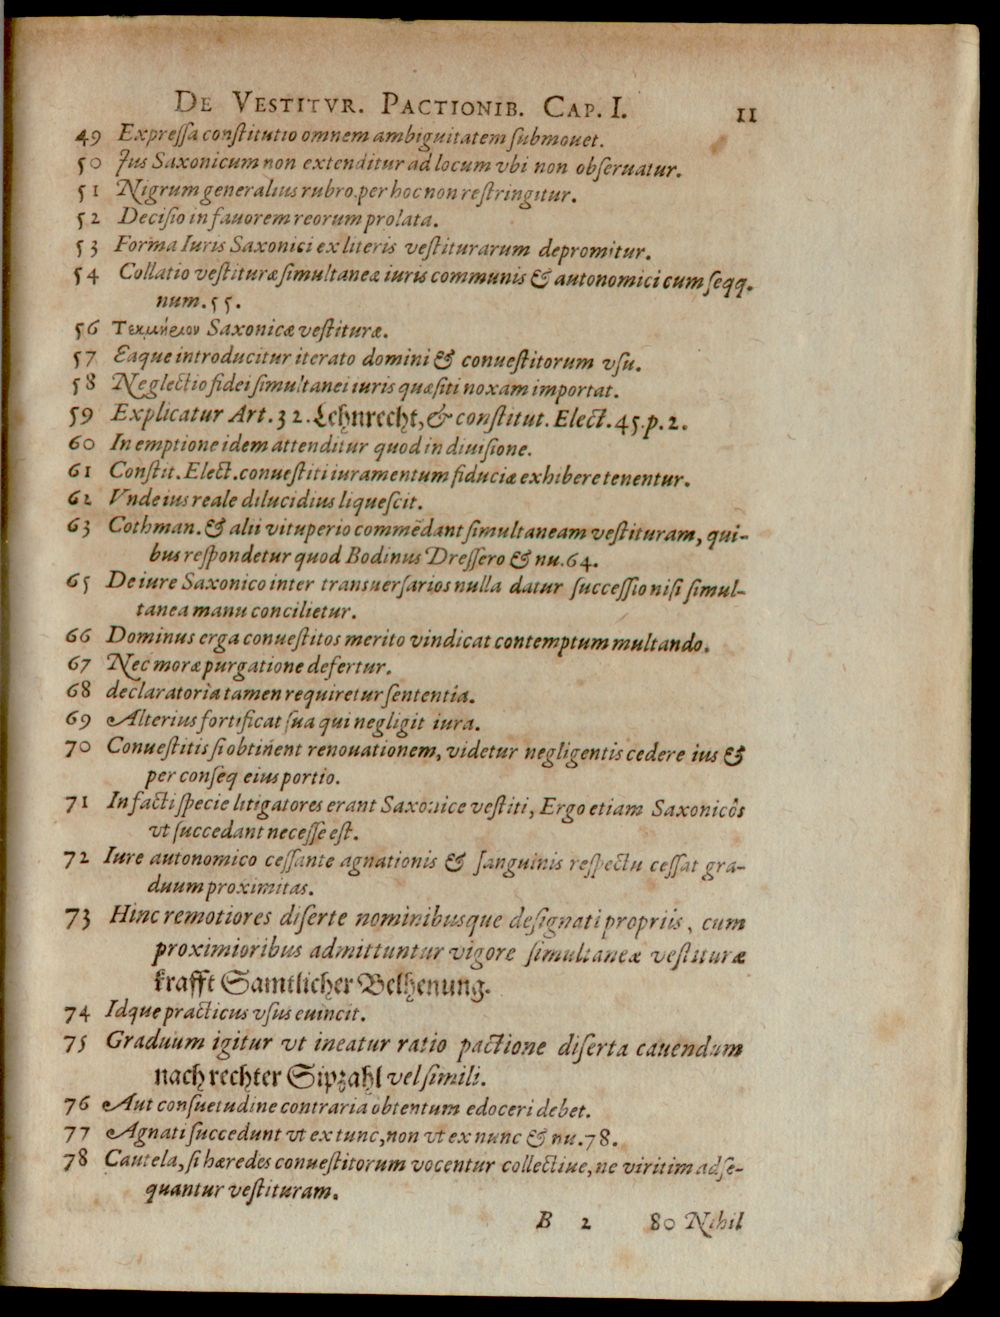 DE VESTITVR. PACTIONIB. CAP. I. 11
49 Expreſſa conſtitutio omnem ambiguitatem ſubmouet.
50 Jus Saxonicum non extenditur ad locum vbi non obſeruatur.
51 Nigrum generalius rubro, per hoc non reſtringitur.
52 Deciſio in favorem reorum prolata.
53 Forma Iuris Saxonici ex literis veſtiturarum depromitur.
54 Collatio veſtituræ ſimultaneæ iuris communis & autonomici cum ſeqq.
num. 55.
56 Τεκμήριον Saxonicæ veſtituræ.
57 Eaque introducitur iterato domini & conueſtitorum vſu.
58 Neglectio fidei ſimultanei iuris quæſiti noxam importat.
59 Explicatur Art. 32. Lehnrecht, & conſtitut. Elect. 45. p. 2.
60 In emptione idem attenditur quod in diuiſione.
61 Conſtit. Elect. conueſtiti iuramentum fiduciæ exhibere tenentur.
62 Vnde ius reale dilucidius liqueſcit.
63 Cothman. & alii vituperio commēdant ſimultaneam veſtituram, qui-
bus reſpondetur quod Bodinus Dreſſero & nu. 64.
65 De iure Saxonico inter transuerſarios nulla datur ſucceſſio niſi ſimul-
tanea manu concilietur.
66 Dominus erga conueſtitos merito vindicat contemptum multando.
67 Nec moræ purgatione defertur.
68 declaratoria tamen requiretur ſententia.
69 Alterius fortificat ſua qui negligit iura.
70 Conueſtitis ſi obtinent renouationem, videtur negligentis cedere ius &
per conſeq eius portio.
71 In facti ſpecie litigatores erant Saxonice veſtiti, Ergo etiam Saxonicôs
vt ſuccedant neceſſe eſt.
72 Iure autonomico ceſſante agnationis & ſanguinis reſpectu ceſſat gra-
duum proximitas.
73 Hinc remotiores diſerte nominibusque deſignati propriis, cum
proximioribus admittuntur vigore ſimultaneæ veſtituræ
krafft Samtlicher Belhenung.
74 Idque practicus vſus euincit.
75 Graduum igitur vt ineatur ratio pactione diſerta cauendum
nach rechter Sipzahl vel ſimili.
76 Aut conſuetudine contraria obtentum edoceri debet.
77 Agnati ſuccedunt vt ex tunc, non vt ex nunc & nu. 78.
78 Cautela, ſi hæredes conueſtitorum vocentur collectiue, ne viritim adſe-
quantur veſtituram.
B 2 80 Nihil